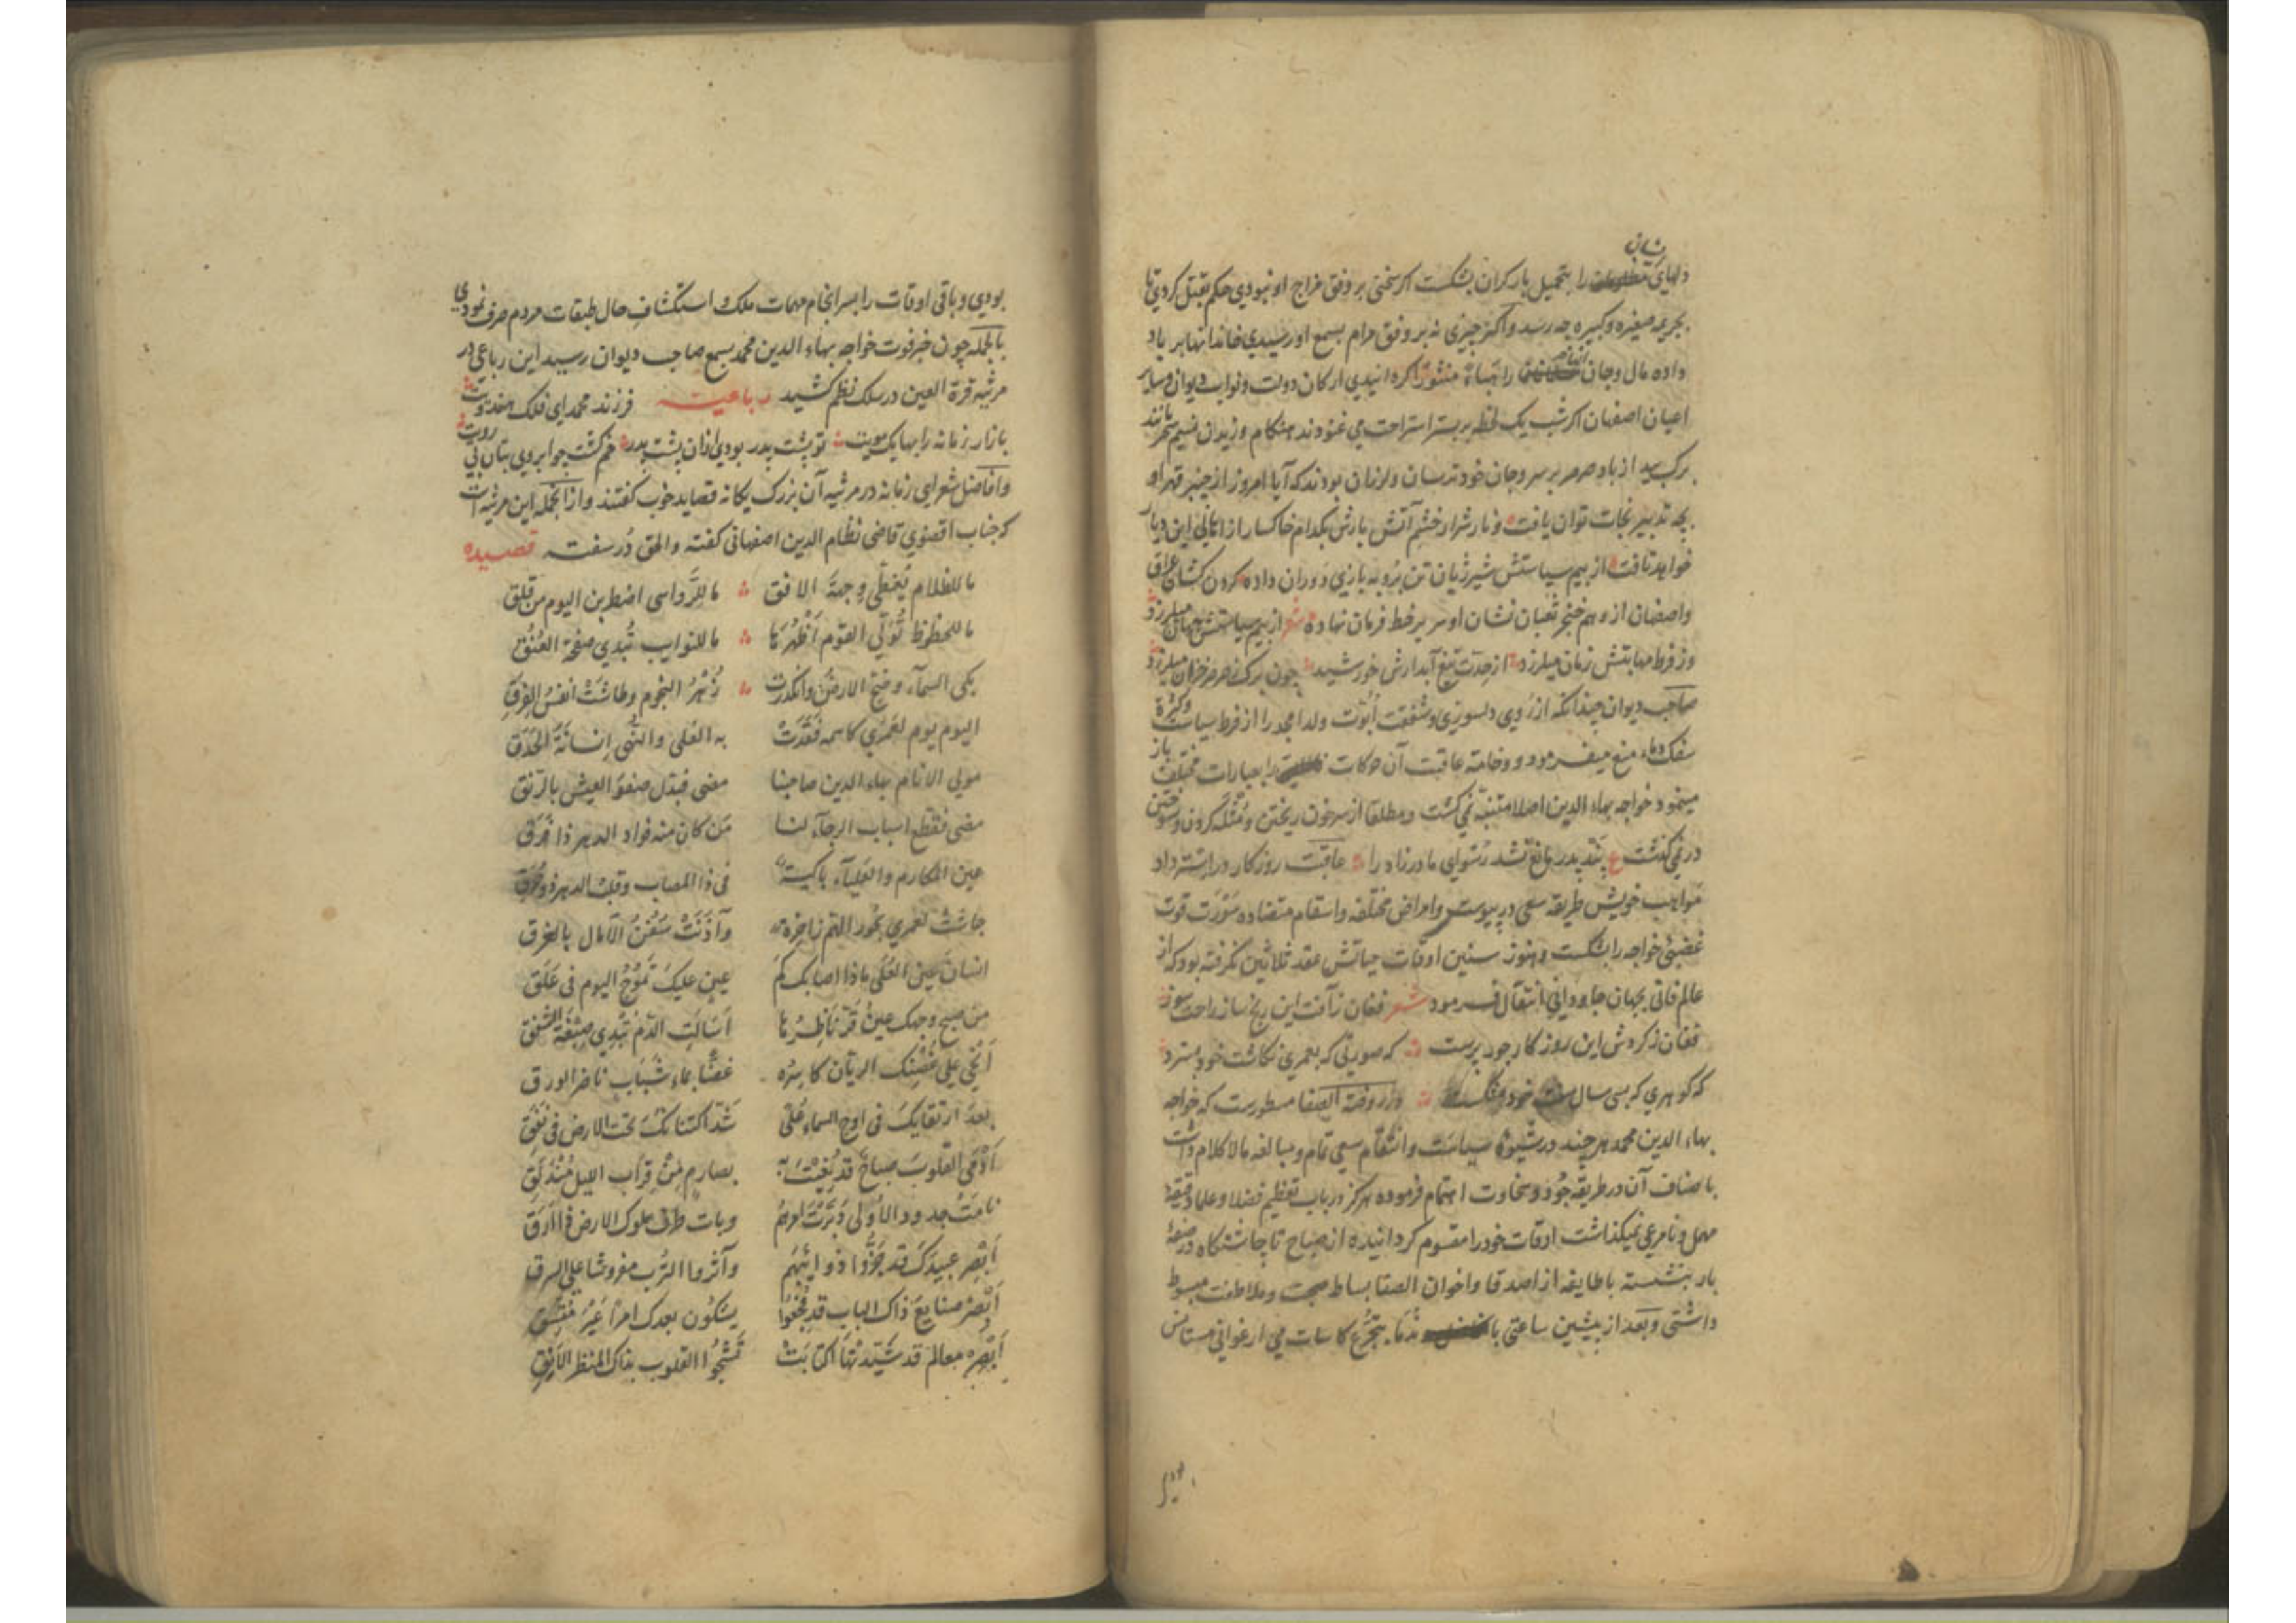 شان
دلهای را بتحمیل بار کران بشکست اکر سخنی بر وفق مزاج او نبودی حکم بقتل کردی تا
بجریمه صغیره و کبیره چه رسد و اکر چیزی نه بر وفق مرام بسمع او رسیدی خاندانها بر باد
داده مال و جان را هباءً منثورًا کردانیدی ارکان دولت و نواب دیوان و سایر
اعیان اصفهان اکر شب یک لحظه بر بستر استراحت می غنودند هنکام وزیدن نسیم سحر مانند
برک بید از باد صرصر بر سر و جان خود ترسان و لرزان بودند که آیا امروز از چنبر قهر او
بچه تدبیر نجات توان یافت و نار شرار خشم آتش بارش بکدام خاکسار از اهالی این دیار
خواهد تافت از بیم سیاستش شیر ژیان تن بروبه بازی دوران داده کردن کشان عراق
و اصفهان از وهم خنجر ثعبان نشان او سر بر خط فرمان نهاده شعر از بیم سیاستش جهان میلرزد
وز فرط مهابتش زمان میلرزد از حدّت تیغ آبدارش خورشید چون برک ز صرصر خزان میلرزد
صاحب دیوان چندانکه از روی دلسوزی و شفقت ابوّت ولد امجد را از فرط سیاست و کثرة
سفک دماء منع میفرمود و وخامة عاقبت آن حرکات را بعبارات مختلف باز
مینمود خواجه بهاء الدین اصلا متنبّه نمی کشت و مطلقا از سر خون ریختن و مُثله کردن و سوختن
در نمی گذشت ع پند پدر مانع نشد رسوای مادرزاد را عاقبت روزکار در استرداد
مواهب خویش طریقه سعی در پیوست و امراض مختلفه و اسقام متضاده سَوْرَت قوت
غضبئ خواجه را بشکست و هنوز سنین اوقات حیاتش عقد ثلاثین نکرفته بود که از
عالم فانی بجهان جاودانی انتقال فرمود شعر فغان ز آفت این رنج ساز راحت سوز
فغان ز کردش این روزکار جور پرست که صورتی که بعمری نکاشت خود بسترد
که کوهری که بسی سال سفت خود بشکست و در روضة الصفا مسطورست که خواجه
بهاء الدین محمد هر چند در شیوهٔ سیاست و انتقام سعی تمام و مبالغه مالاکلام داشت
باضعاف آن در طریقه جُود و سخاوت اهتمام فرموده هرکز در باب تعظیم فضلا و علما دقیقهٔ
مهمل و نامرعی نمیکذاشت اوقات خود را مقسوم کردانیده از صباح تا چاشتکاه در صفهٔ
بار بنشسته با طایفه از اصدقا و اخوان الصفا بساط صحبت و ملاطفت مبسوط
داشتی و بعد از پیشین ساعتی با ندما بتجرّع کاسات می ارغوانی مستانس
بودی
بودی و باقی اوقات را بسرانجام مهمات ملک و استکشاف حال طبقات مردم صرف نمودی
بالجمله چون خبر فوت خواجه بهاء الدین محمد بسمع صاحب دیوان رسید این رباعی در
مرثیه قرة العین در سلک نظم کشید رباعیة فرزند محمد ای فلک هندوت
بازار زمانه را بها یک مویت تو پشت پدر بودی ازان پشت پدر خم کشت چو ابروی بتان بی رویت
و افاضل شعرای زمانه در مرثیه آن بزرک یکانه قصاید خوب کفتند و از انجمله این مرثیه است
که جناب اقضوی قاضی نظام الدین اصفهانی کفته و الحق دُر سفته قصیده
ما للظلام یُغطّی وجهة الافق ما للرَّواسی اضطربن الیوم من قلق
ما للحظوظ تُوَلّی القوم أظهُرَها ما للنوایب تُبدی صفحة العُنُق
بکی السمآء و ضجّ الارضُ وانکدرت زُهْرُ النجوم وطاشَتْ انفسُ الفِرَق
الیوم یوم لعَمری کاسمه فَقَدَتْ به العُلی والنُهی إنسانَة الحَدَق
مولی الانام بهاء الدین صاحبنا مضی فبدّل صفوَ العیش بالرَّنق
مضی فقطع اسباب الرجآء لنا مَن کان منه فؤاد الدهر ذا فَرَق
عین المکارم والعَلیآء باکیة فی ذا المصاب وقلب الدهر ذو حُرَق
جاشت لعمری بحُور الهمّ زاخرة وآذَنَتْ سُفُنُ الآمال بالغرق
انسانَ عین العُلی ماذا اصابک کم عینٍ علیکَ تَمُوجُ الیوم فی عَلَق
من صبح وجهک عینٌ قَرَّ ناظِرُها أسَالَتِ الدّمَ تُبْدِی صِبْغَة الشفق
أبْکی علی غُصْنِک الریّان کاسِرُه غضًّا بماء شَبَابٍ ناضر الورق
بعدَ ارتقایکَ فی اوج السماء عُلًی شَدّ اکتنانکَ تحت الارض فی نَفَق
أدْمَی القلوبَ صباحٌ قد نُعیتَ به بصارمٍ مِنْ قِراب اللیل مُنْدَلِق
نامَتْ جدود الأولی وبات طرف ملوک الارض فی أرَق
أبْصِر عبیدَکَ قد جَزُّوا ذوائبَهم وآثروا التُرب مفروشا علی السرق
أبْصر صنایعَ ذاک الباب قد فُجِعُوا یشکون بعدک امرًا غیرَ متّسِق
أبْصِر معالمَ قد شَیَّدْتَها اکتأبَتْ تَشْجُو القلوب بذاک المنظر الأنِق